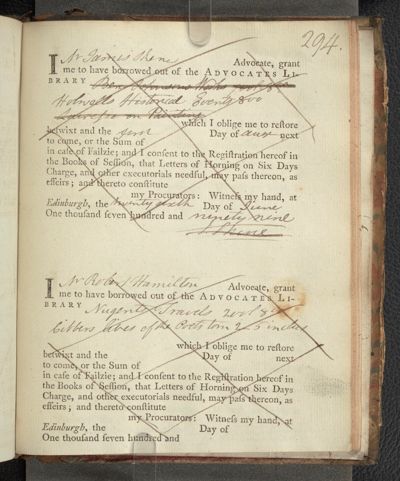 294.
I Mr James Skene Advocate, grant
me to have borrowed out of the ADVOCATES LI-
BRARY Ben Johnsons Works
Holwells Historical Events 8vo
on Painting
which I oblige me to restore
betwixt and the first Day of next
to come, or the Sum of
in case of Failzie; and I consent to the Registration hereof in
the Books of Session, that Letters of Horning on Six Days
Charge, and other executorials needful, may pass thereon, as
effeirs; and thereto constitute
my Procurators: Witness my hand, at
Edinburgh, the twenty sixth Day of June
One thousand seven hundred and ninety nine
J Skene
I Mr Robert Hamilton Advocate, grant
me to have borrowed out of the ADVOCATES LI-
BRARY Nugents Travels 2 vols 8vo
Cibbers Lives of the Poets tom 2 5 inclus
which I oblige me to restore
betwixt and the Day of next
to come, or the Sum of
in case of Failzie; and I consent to the Registration hereof in
the Books of Session, that Letters of Horning on Six Days
Charge, and other executorials needful, may pass thereon, as
effeirs; and thereto constitute
my Procurators: Witness my hand, at
Edinburgh, the Day of
One thousand seven hundred and